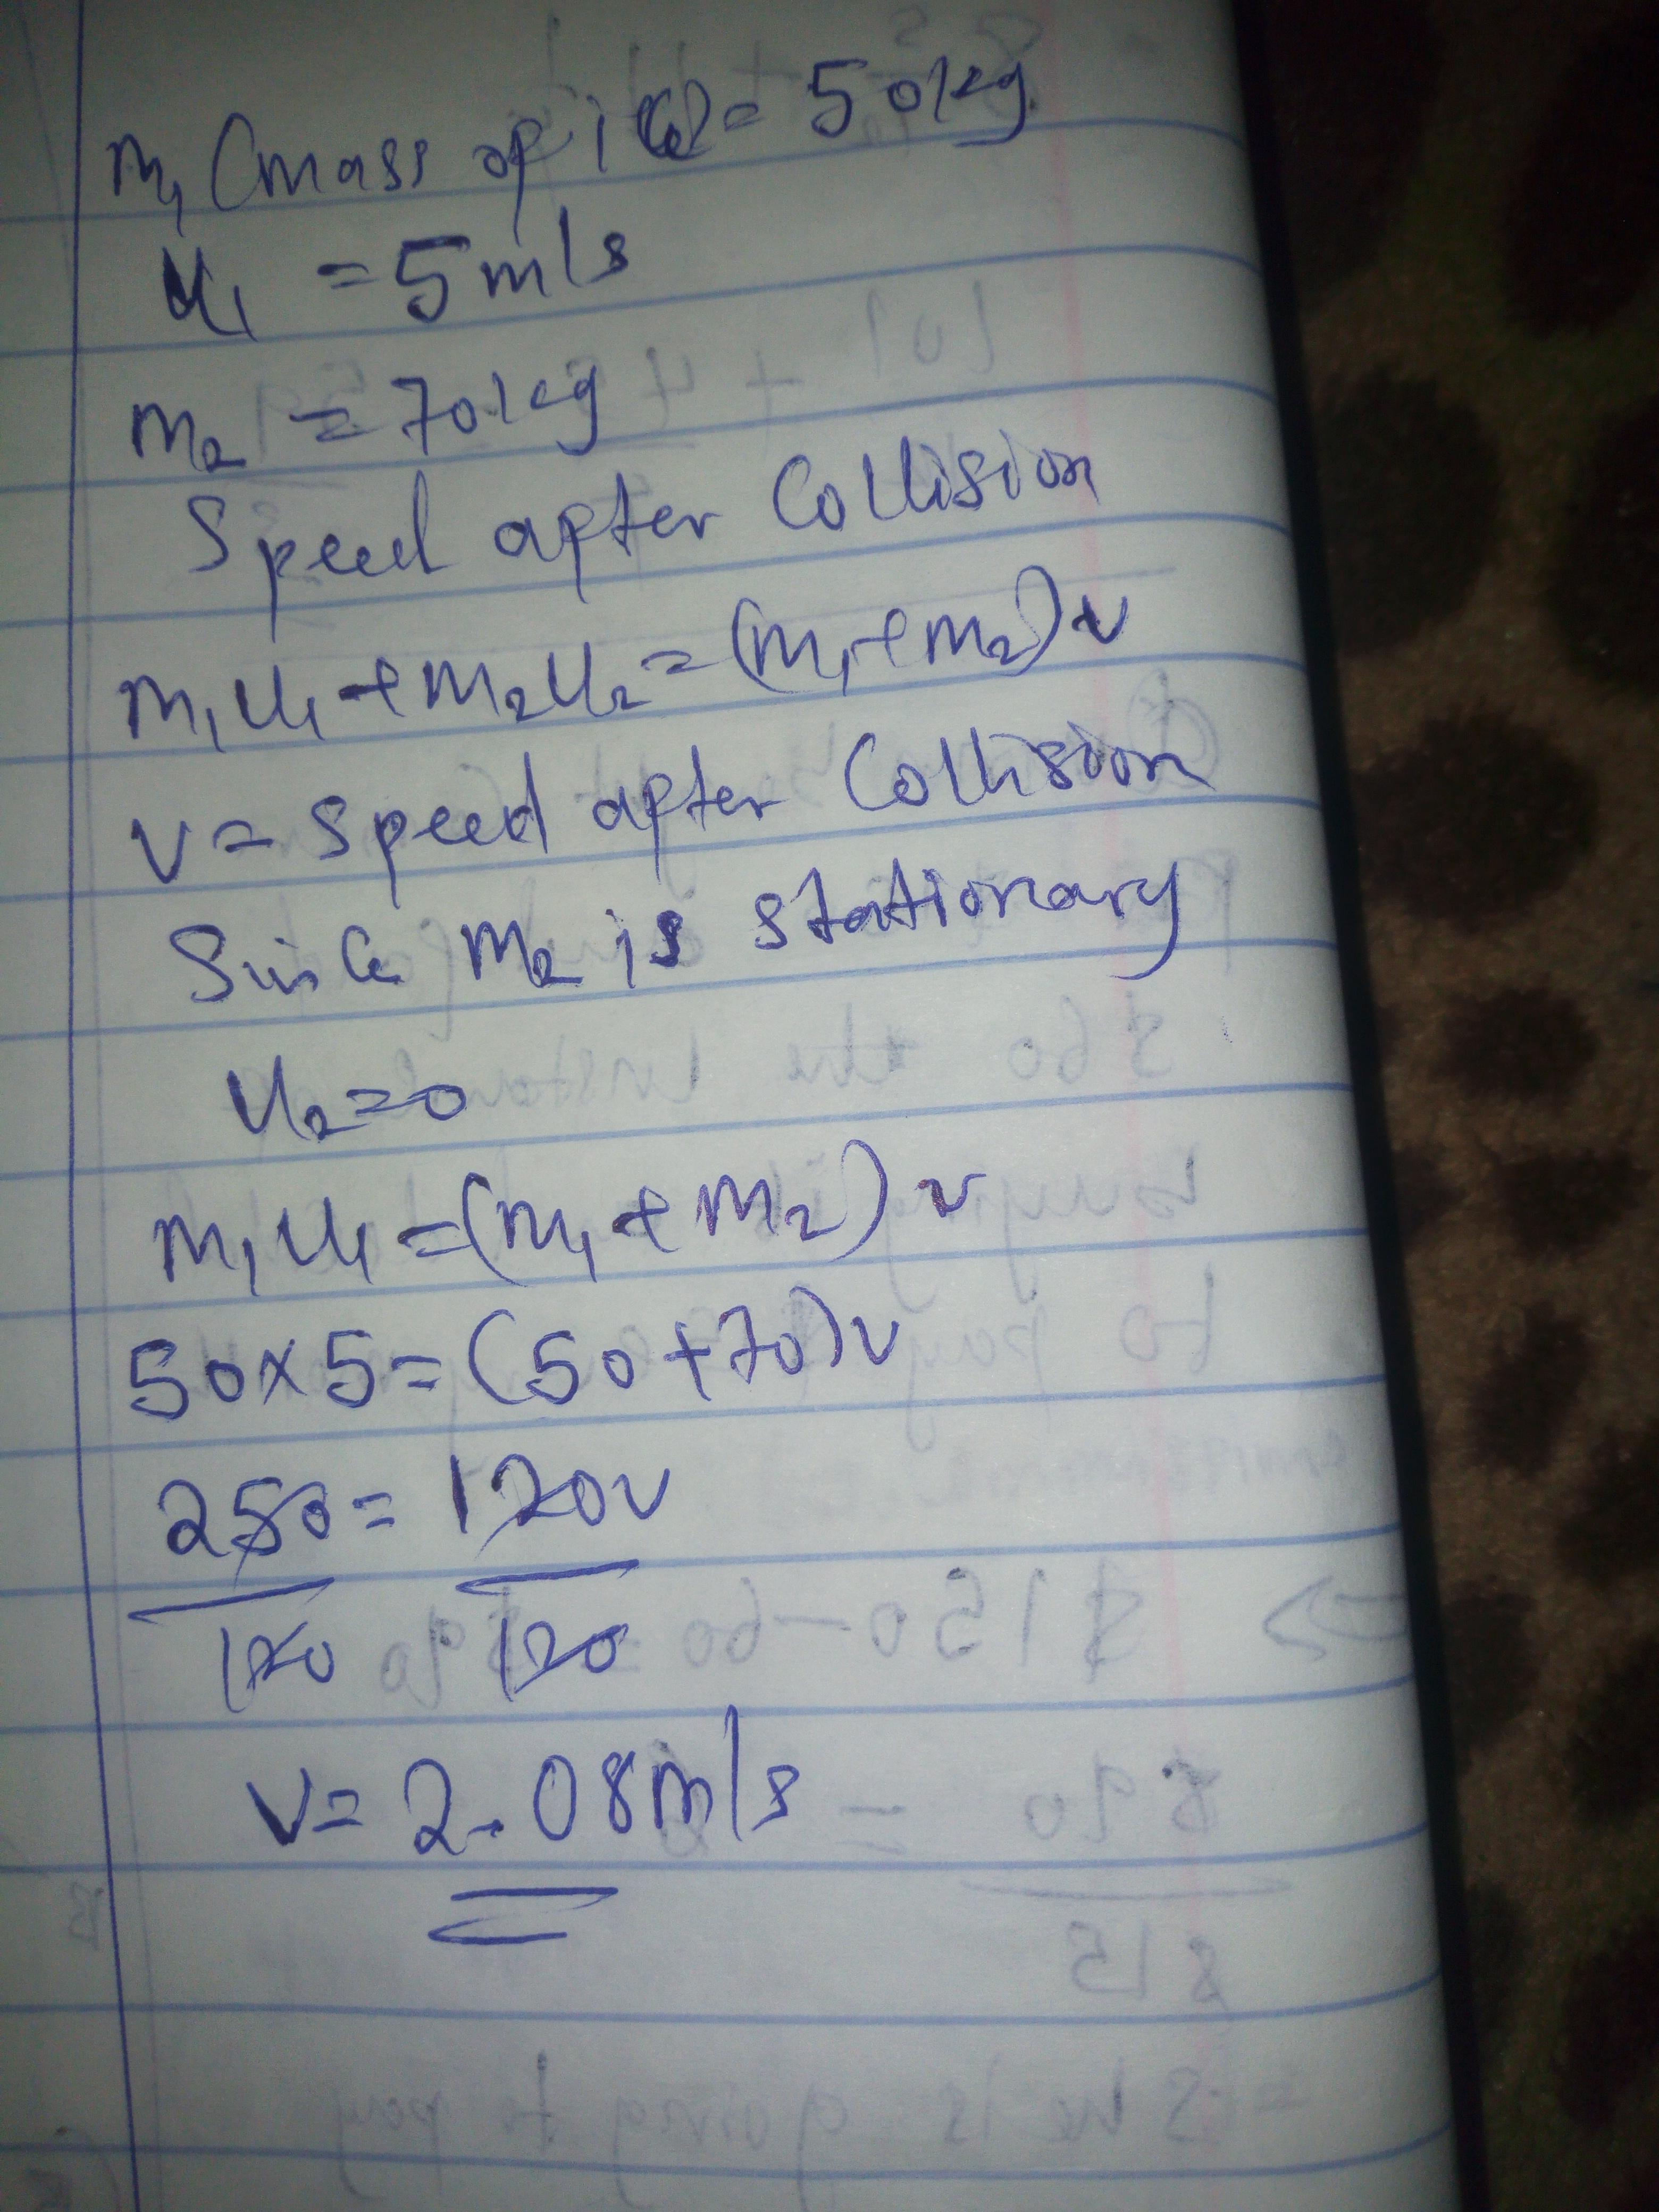 m₁ (mass of ice) = 50kg
u₁ = 5m/s
m₂ = 70kg
Speed after Collision
m₁u₁ + m₂u₂ = (m₁ + m₂)v
v = Speed after Collision
Since m₂ is stationary
u₂ = 0
m₁u₁ = (m₁ + m₂)v
50 x 5 = (50 + 70)v
250 = 120v
120 120
v = 2.08m/s